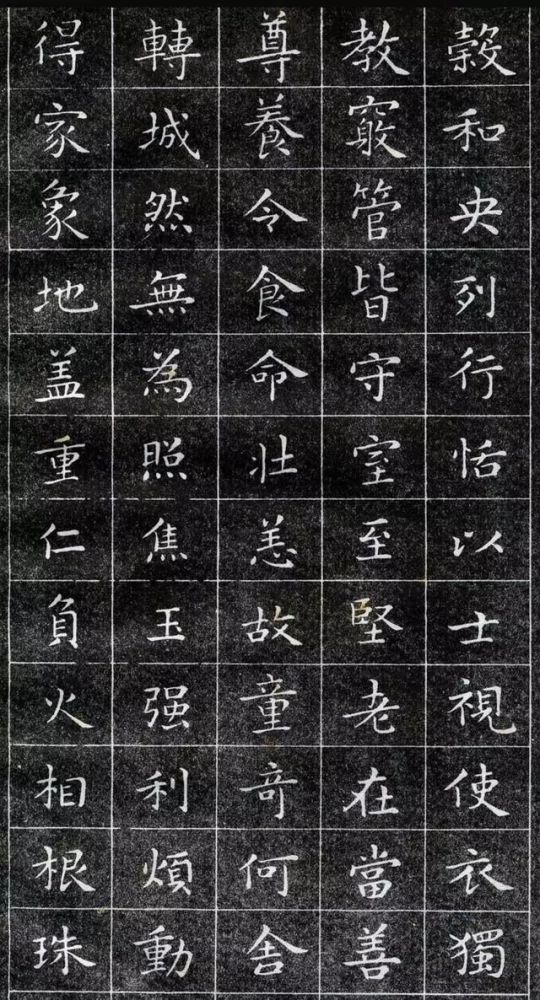 穀和央列行恬以士視使衣獨
教管皆守室至堅老在當善
尊養令食命壯恙故童奇何舍
轉城然無為照焦玉强利煩動
得家象地盖重仁負火相根珠